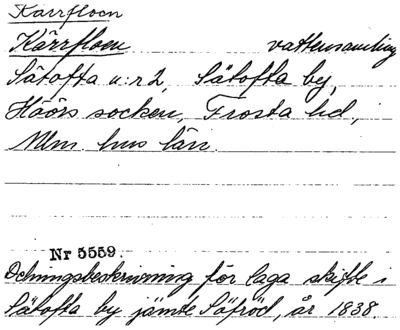 Kärrfloen
Kärrfloen vattensamling
Sätofta n:r 2, Sätofta by,
Höörs socken, Frosta hd,
Mlm hus län.
Nr 5559
Delningsbeskrivning för laga skifte i
Sätofta by jämte Säfröd, år 1838.